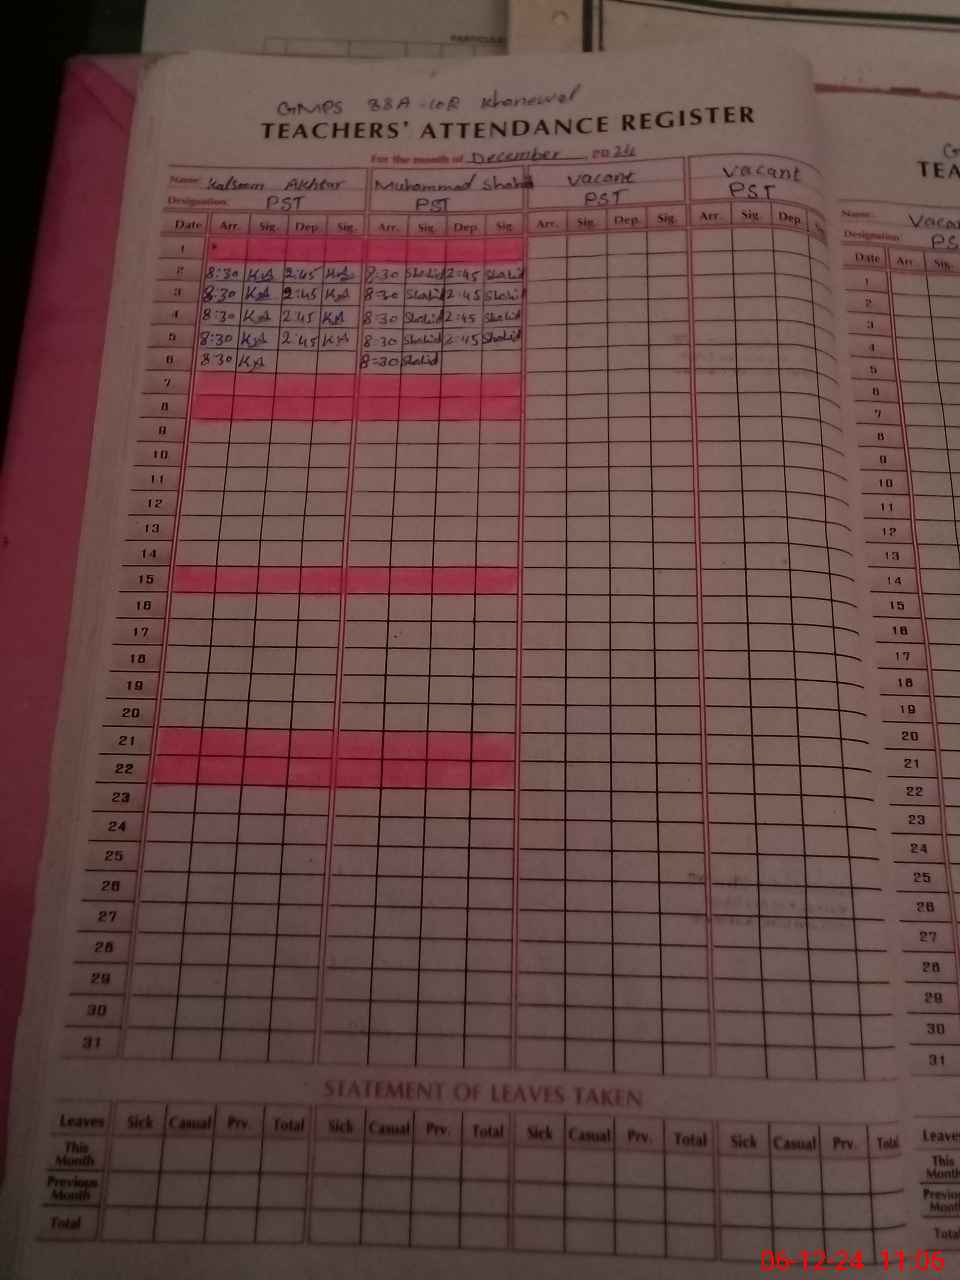 PARTICULA
GMPS 88A-10R Khanewal
TEACHERS' ATTENDANCE REGISTER
For the month of December, 2024
Name: Kalsoom Akhtar Muhammad Shahid Vacant Vacant
Designation: PST PST PST PST
Date Arr. Sig. Dep. Sig. Arr. Sig. Dep. Sig. Arr. Sig. Dep. Sig. Arr. Sig. Dep. Sig.
1
2 8:30 KA 2:45 KA 8:30 Shahid 2:45 Shahid
3 8:30 KA 2:45 KA 8:30 Shahid 2:45 Shahid
4 8:30 KA 2:45 KA 8:30 Shahid 2:45 Shahid
5 8:30 KA 2:45 KA 8:30 Shahid 2:45 Shahid
6 8:30 KA 8:30 Shahid
7
8
9
10
11
12
13
14
15
16
17
18
19
20
21
22
23
24
25
26
27
28
29
30
31
STATEMENT OF LEAVES TAKEN
Leaves Sick Casual Prv. Total Sick Casual Prv. Total Sick Casual Prv. Total Sick Casual Prv. Total
This
Month
Previous
Month
Total
G
TEA
Name: Vacan
Designation: PS
Date Arr. Sig.
1
2
3
4
5
6
7
8
9
10
11
12
13
14
15
16
17
18
19
20
21
22
23
24
25
26
27
28
29
30
31
Leaves
This
Month
Previo
Mont
Total
06-12-24 11:06